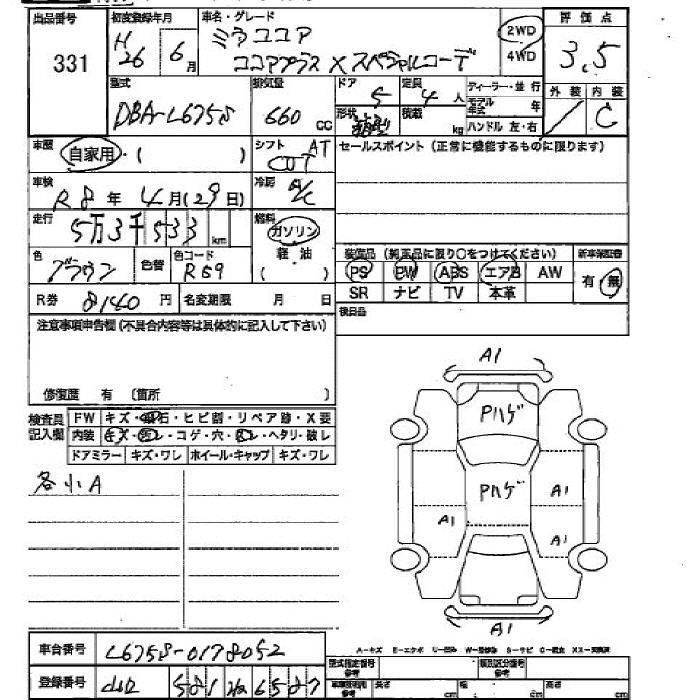 出品番号
331
初度登録年月
H26 6月
車名・グレード
ミラココア
ココアプラス X スペシャルコーデ
2WD
4WD
評価点
3.5
外装 内装
C
型式
DBA-L675S
排気量
660 cc
ドア
5
定員
4人
形状
積載
kg
ディーラー・並行
モデル年式 年
ハンドル 左・右
車歴
自家用・( )
シフト AT
CVT
車検
R8年 4月(29日)
冷房 A/C
走行
5万3千533km
燃料
ガソリン
軽油
( )
色
ブラウン
色替
色コード
R59
R券 8140円
名変期限 月 日
セールスポイント (正常に機能するものに限ります)
装備品 (純正品に限り○をつけてください)
PS PW ABS エアB AW
SR ナビ TV 本革
新車保証書
有・無
後日品
注意事項申告欄(不具合内容等は具体的に記入して下さい)
修復歴 有 〔箇所 〕
検査員記入欄
FW キズ・飛石・ヒビ割・リペア跡・X要
内装 キズ・汚レ・コゲ・穴・スレ・ヘタリ・破レ
ドアミラー キズ・ワレ ホイール・キャップ キズ・ワレ
各小A
A1
Pハゲ
Pハゲ
A1
A1
A1
A1
車台番号 L675S-0178052
登録番号
581
6587
型式指定番号 参考
類別区分番号 参考
長さ cm 幅 cm 高さ cm